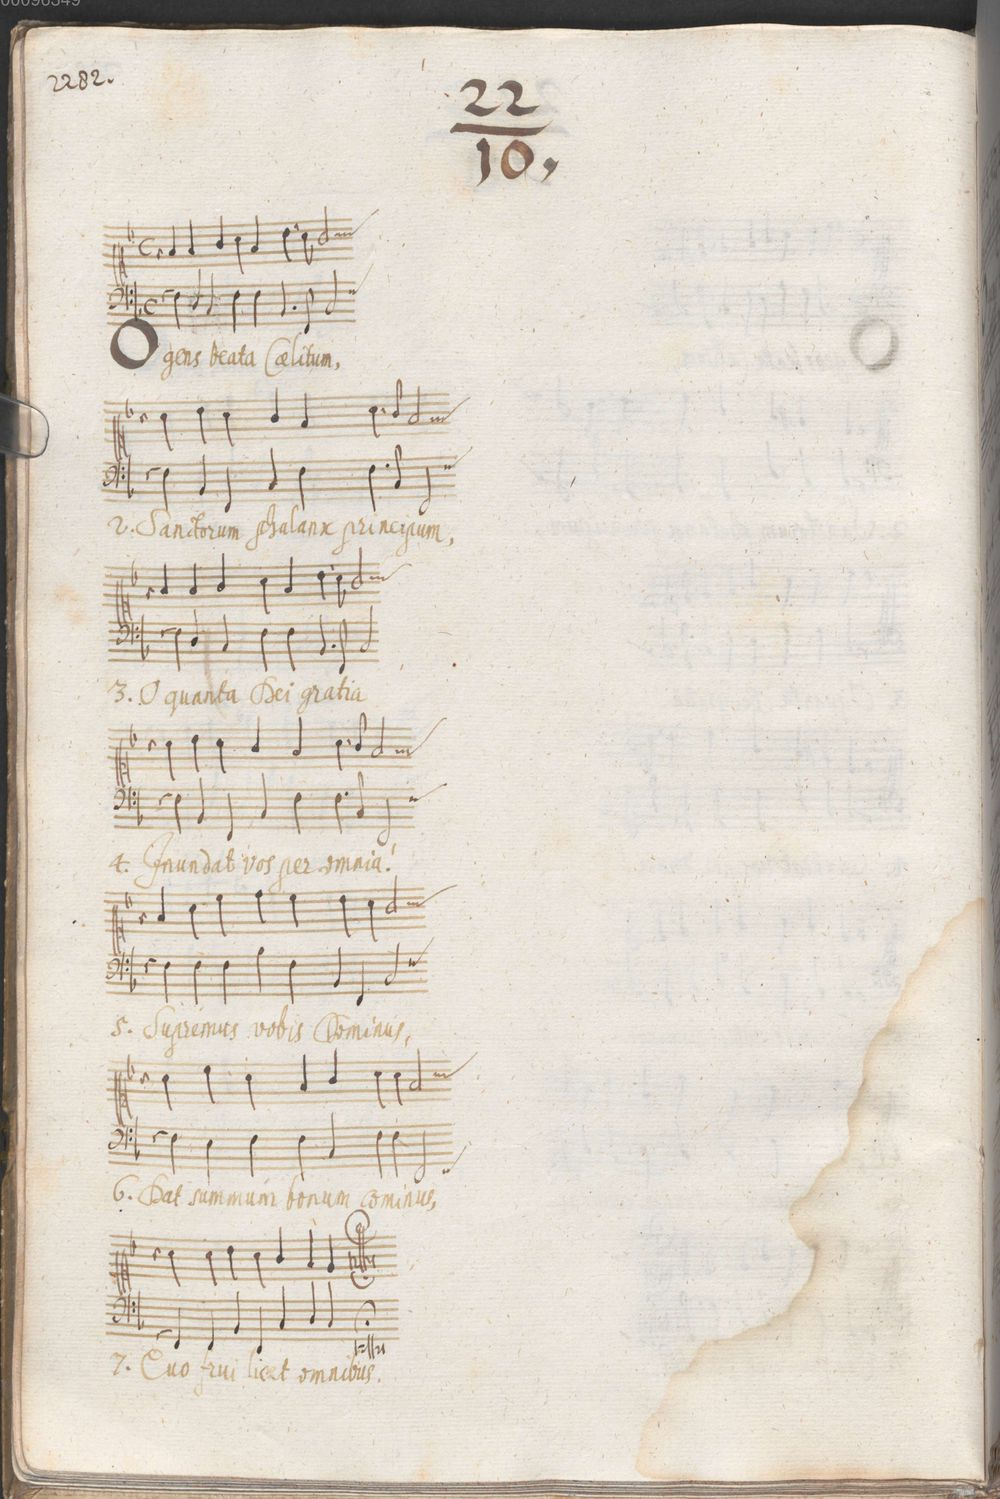 00096349
2282.
22
10,
O gens beata Cælitum,
2. Sanctorum phalanx principum,
3. O quanta Dei gratia
4. Inundat vos per omnia!
5. Supremus vobis Dominus,
6. Dat summum bonum cominus,
7. Quo frui licet omnibus.